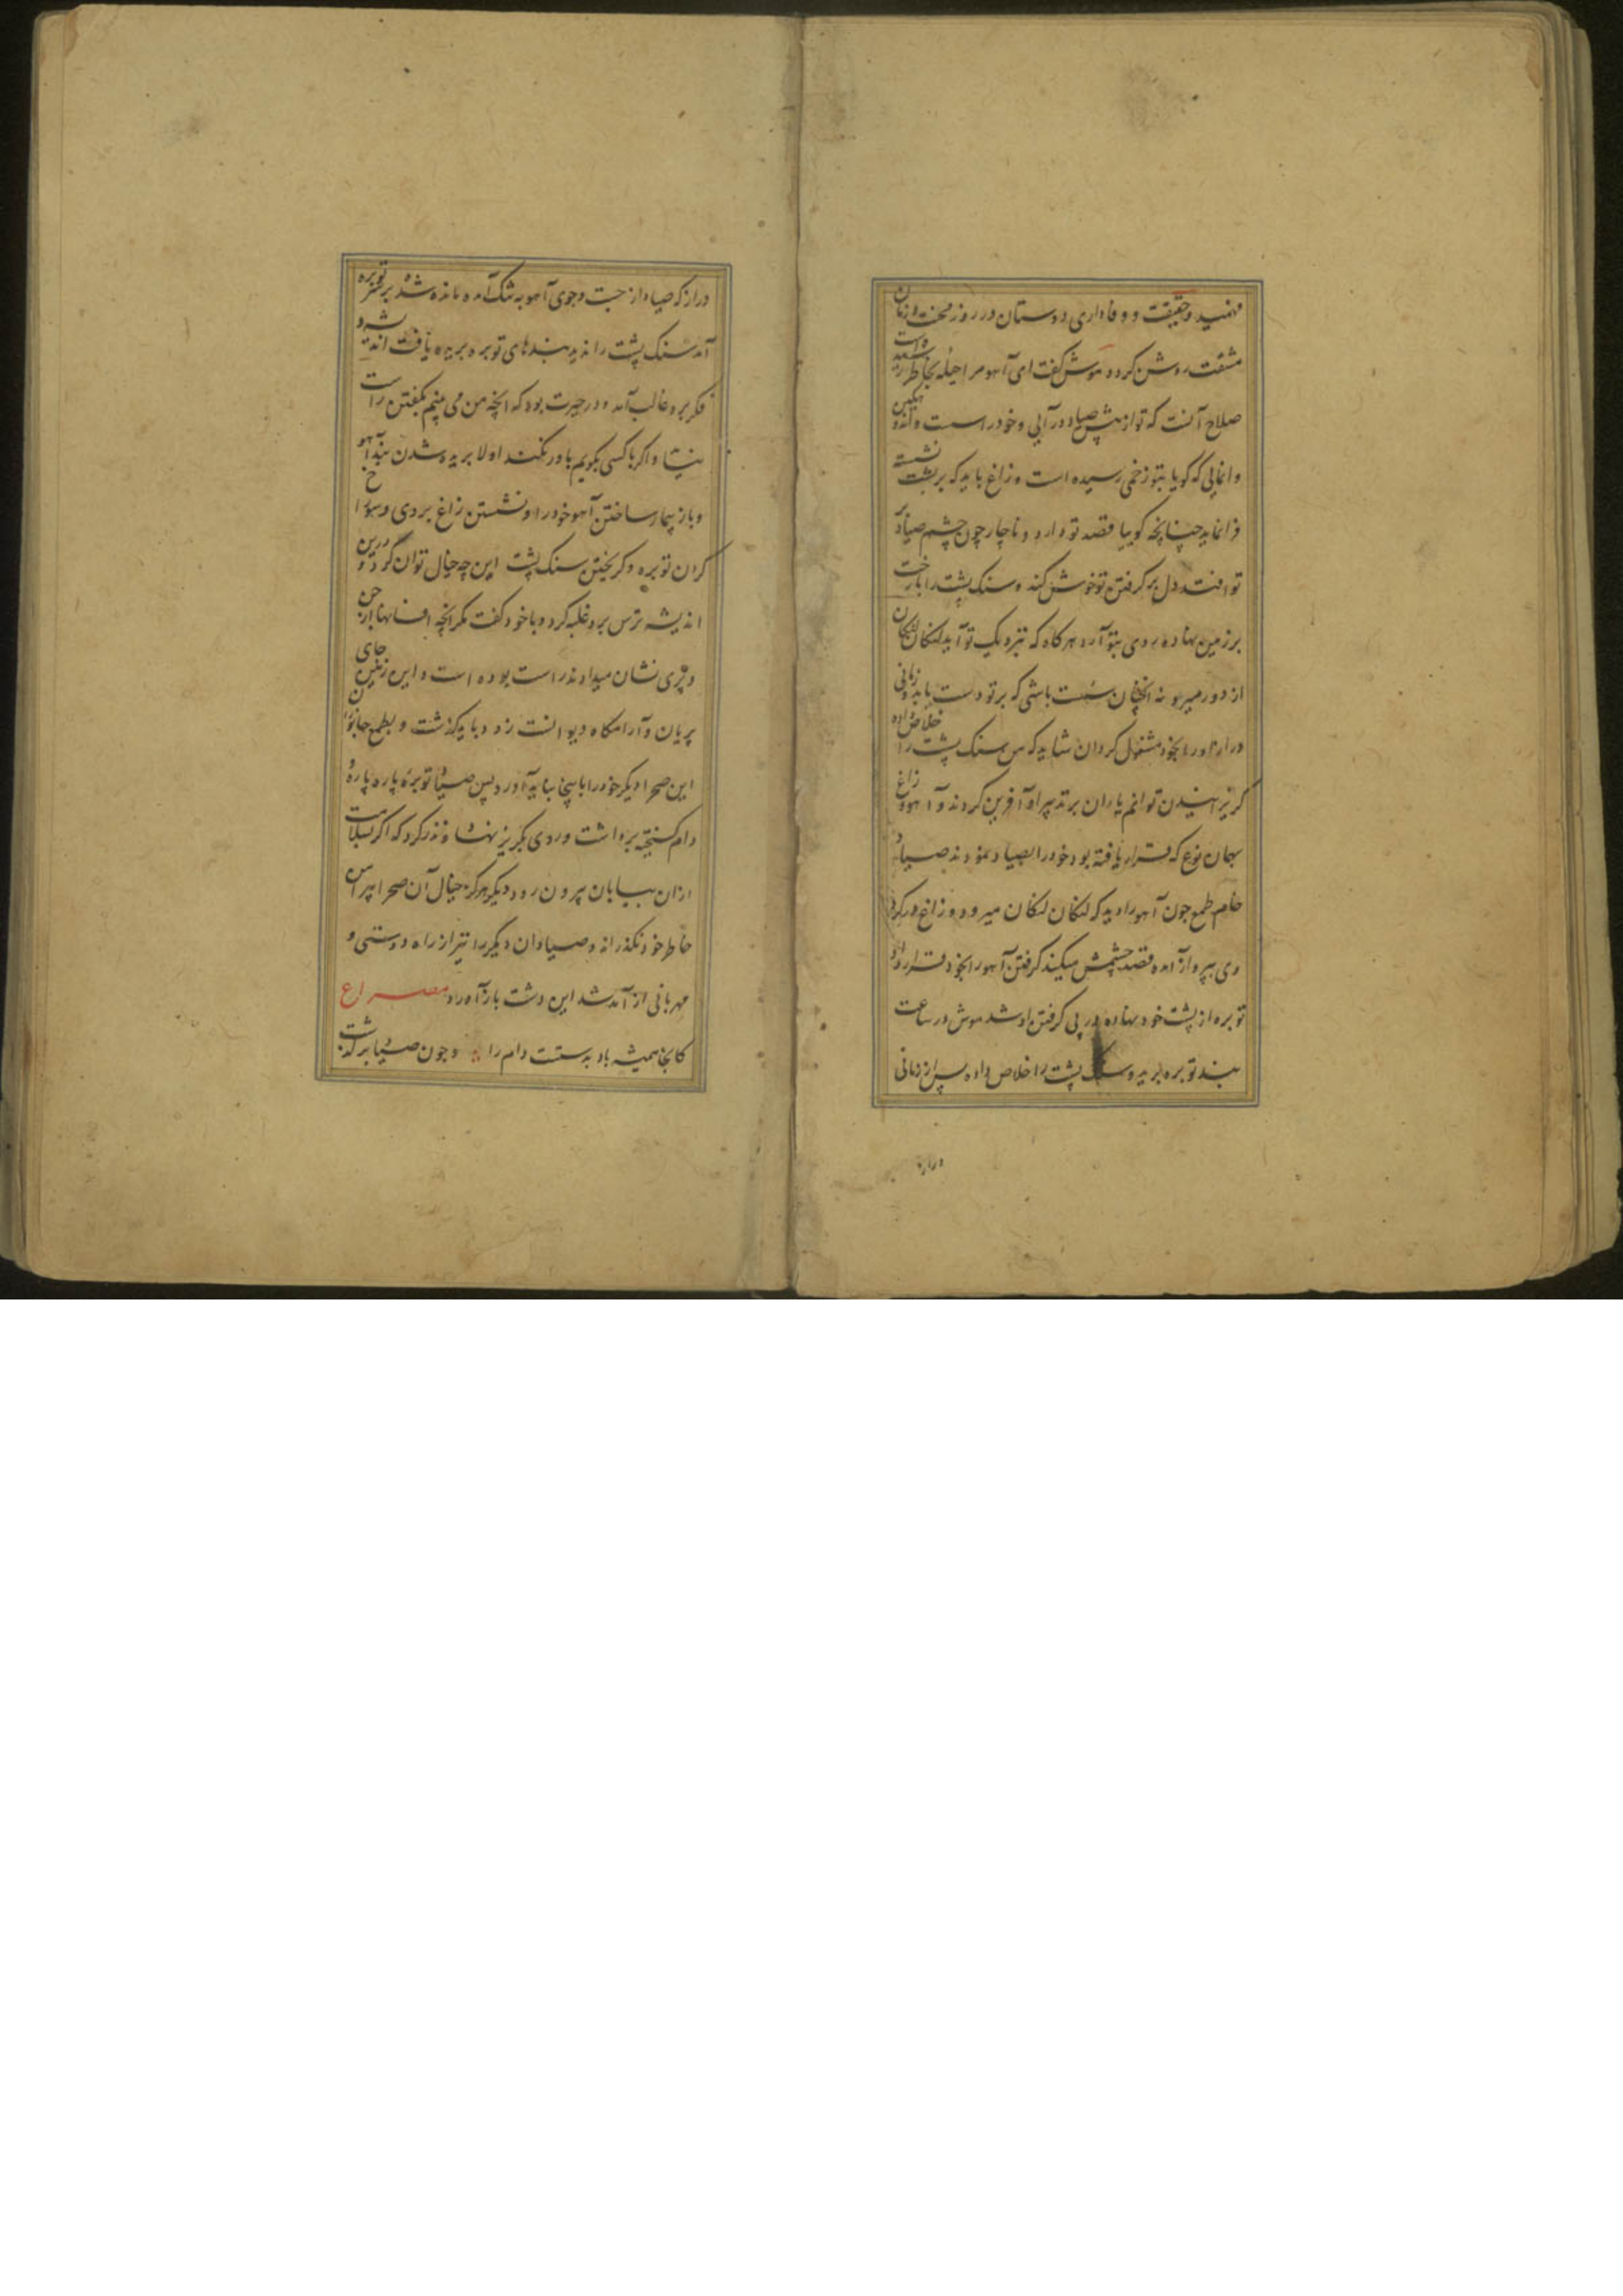 فهمید و حقیقت و وفاداری دوستان در روز محنت و زمان
مشقت روشن کردد موش کفت ای آهو مرا حیله بخاطر رسیده است
صلاح آنست که تو از پیش صیاد درآیی و خود را سست و اندوهکین
وانمایی که کویا بتو زخمی رسیده است و زاغ باید که بر پشت نشسته
فرانماید چنانچه کوییا قصد تو دارد و ناچار چون چشم صیاد بر
تو افتد دل بر کرفتن تو خوش کند و سنک پشت را با رخت
بر زمین نهاده روی بتو آرد هرکاه که نزدیک تو آید لنکان لنکان
از دور میرو نه انچنان سست باشی که بر تو دست یابد و زمانی
دراز او را بخود مشغول کردان شاید که من سنک پشت را خلاص داده
کریزانیدن توانم یاران بر تدبیر او آفرین کردند و آهو و زاغ
بهمان نوع که قرار یافته بود خود را بصیاد نمودند صیاد
خام طمع چون آهو را دید که لنکان لنکان میرود و زاغ در کرد
وی بپرواز آمده قصد چشمش میکند کرفتن آهو را بخود قرار داد و
توبره از پشت خود نهاده در پی کرفتن او شد موش در ساعت
بند توبره ببرید و سنک پشت را خلاص داده پس از زمانی
دراز
دراز که صیاد از جست وجوی آهو به تنک آمد و مانده شد بر سر توبره
آمد سنک پشت را ندید بندهای توبره بریده یافت اندیشه و
فکر برو غالب آمد و در حیرت بود که انچه من می بینم بکفتن راست
نیست و اکر با کسی بکویم باور نکند اولا بریده شدن بند آهو
و باز بیمار ساختن آهو خود را و نشستن زاغ بر وی و سوراخ
کردن توبره و کریختن سنک پشت این چه خیال توان کرد و درین
اندیشه ترس برو غلبه کرد و با خود کفت مکر انچه افسانها از جن
و پری نشان میدادند راست بوده است و این زمین جای
پریان و آرامکاه دیوانست زود باید کذشت و بطمع جانوران
این صحرا دیکر خود را باینجا نباید آورد پس صیاد توبره پاره پاره و
دام کسیخته برداشت و روی بکریز نهاد و نذر کرد که اکر بسلامت
ازان بیابان بیرون رود دیکر هرکز خیال آن صحرا پیرامن
خاطر خود نکذراند و صیادان دیکر را نیز از راه دوستی و
مهربانی از آمد شد این دشت باز آورد مصراع
کانجا همیشه باد بدستست دام را و چون صیاد برکشت